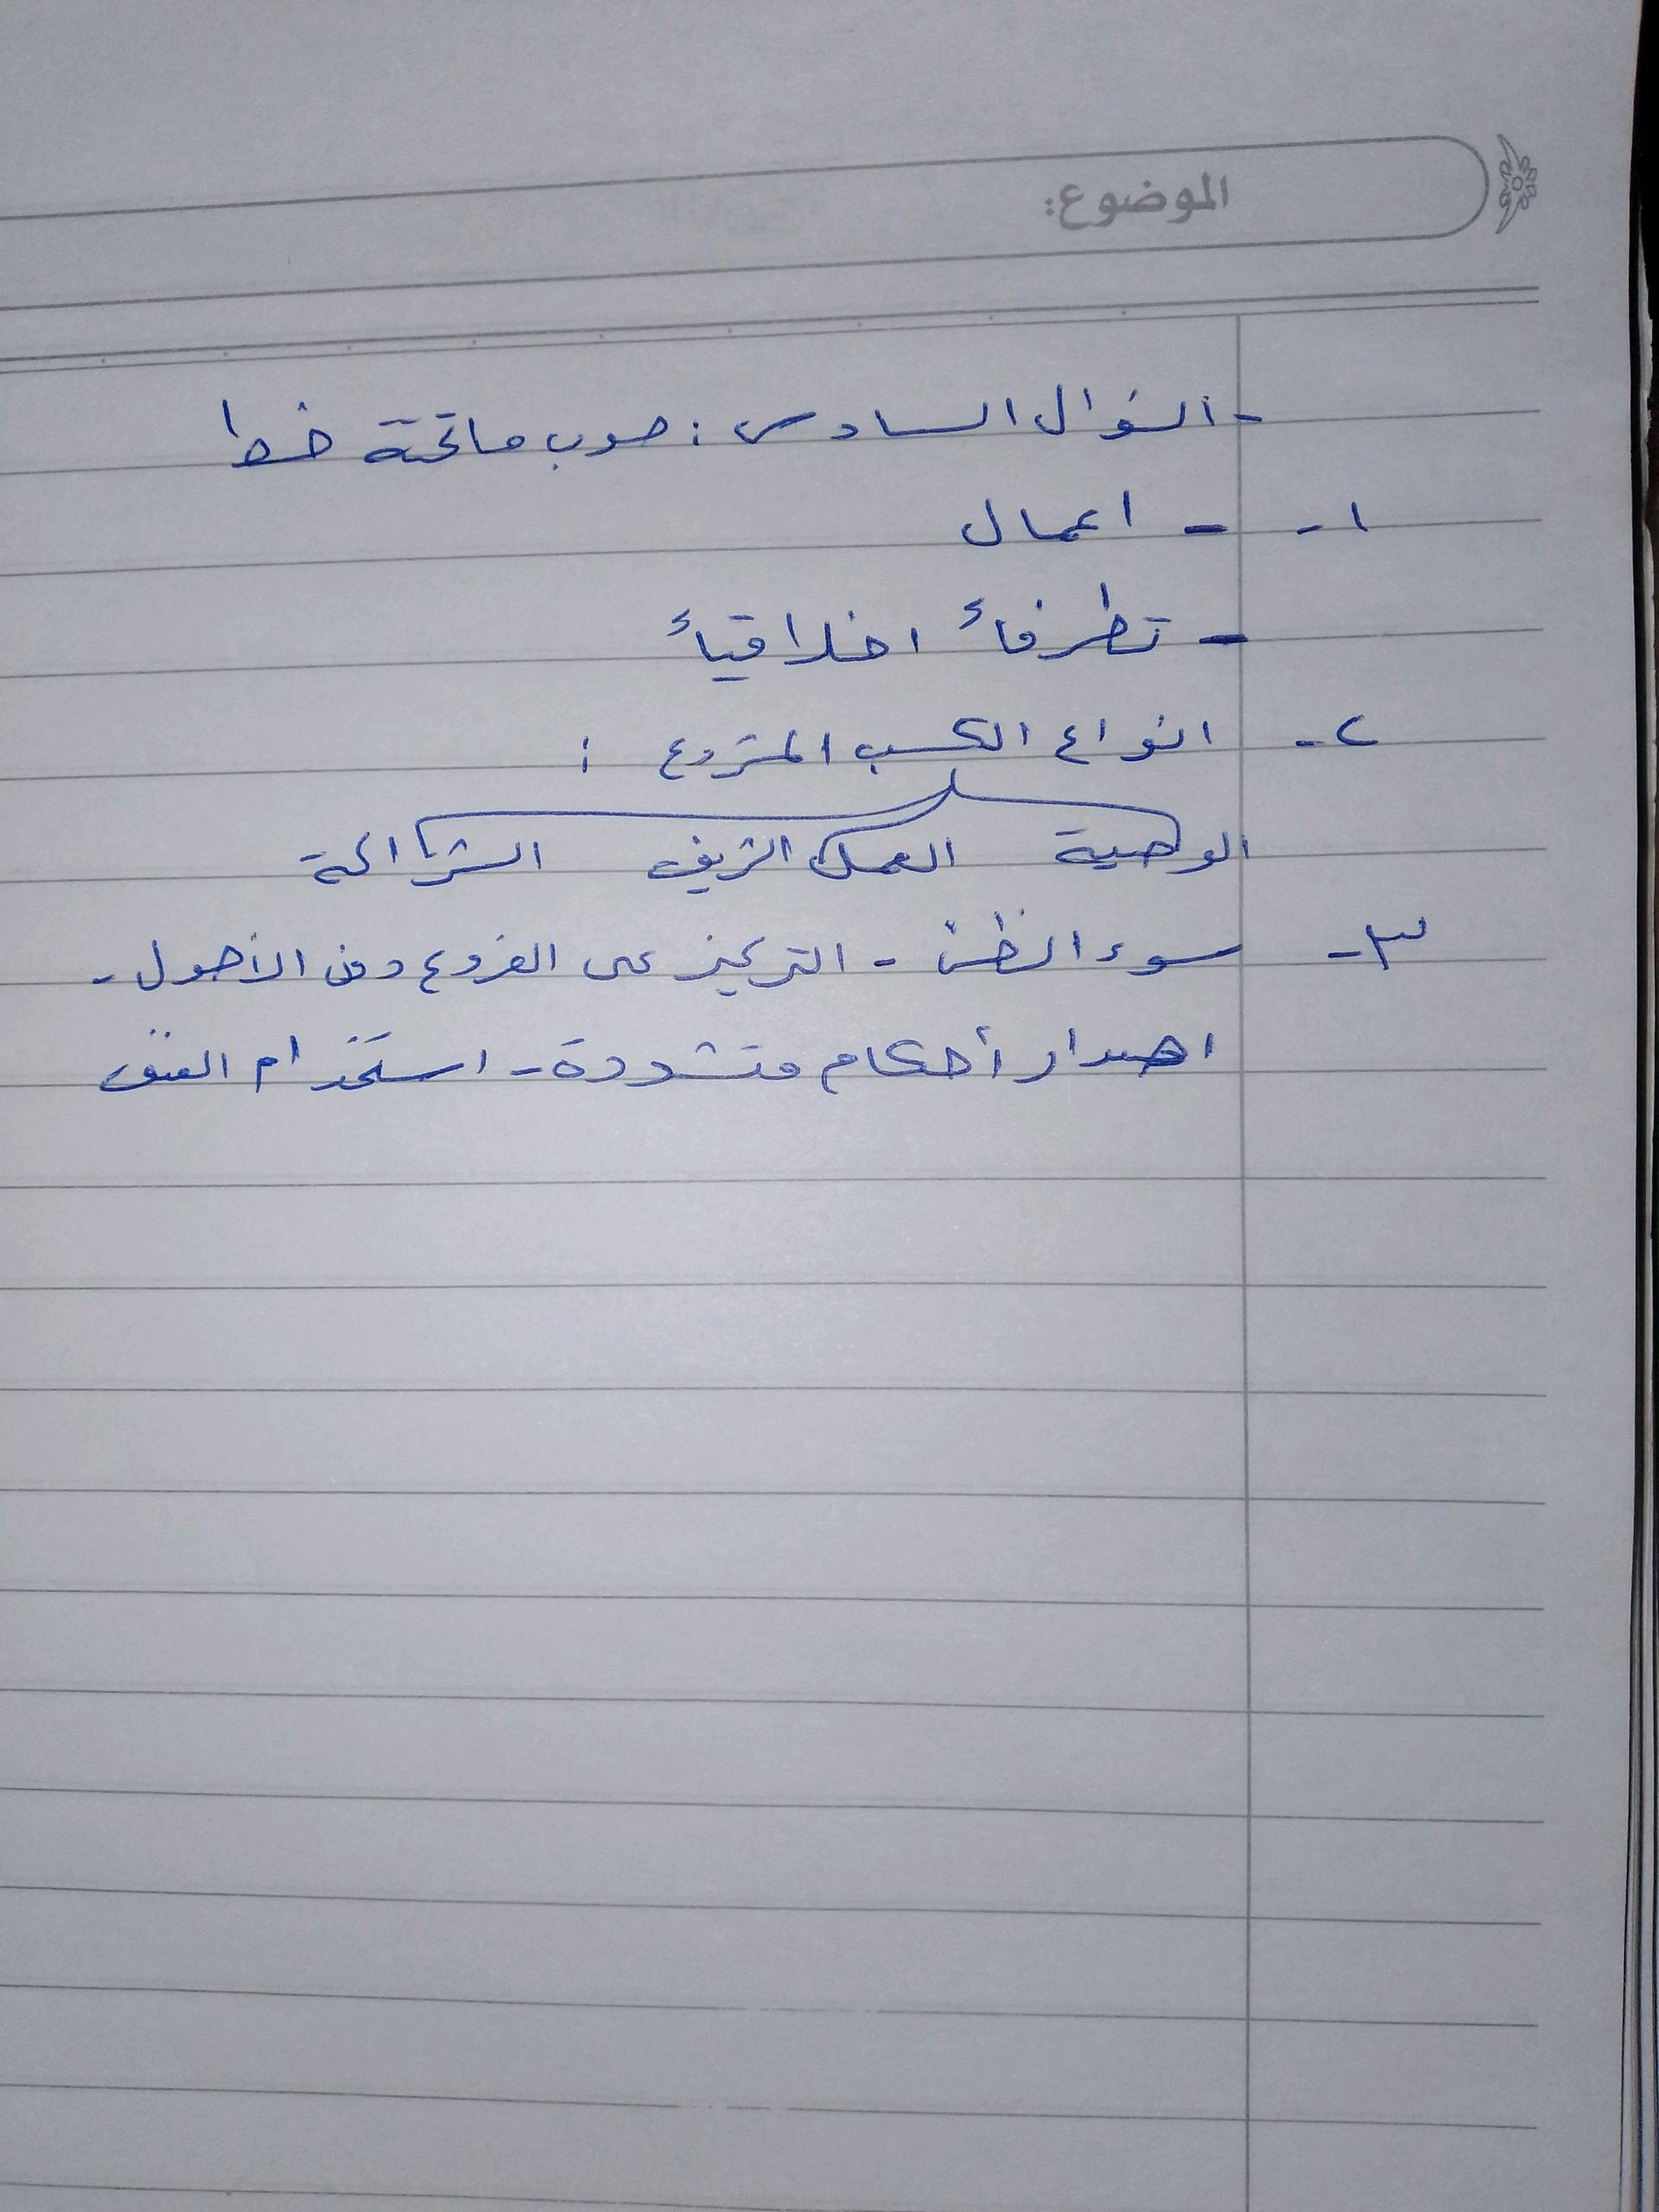 الموضوع:
- السؤال السادس : صوب ماتحتة خط
١- - اعمال
- تطرفاً اخلاقياً
٢- انواع الكسب المشروع :
الوصية العمل الشريف الشراكة
٣- سوء الظن - التركيز على الفروع دون الأصول -
اصدار أحكام متشددة - استخدام العنف